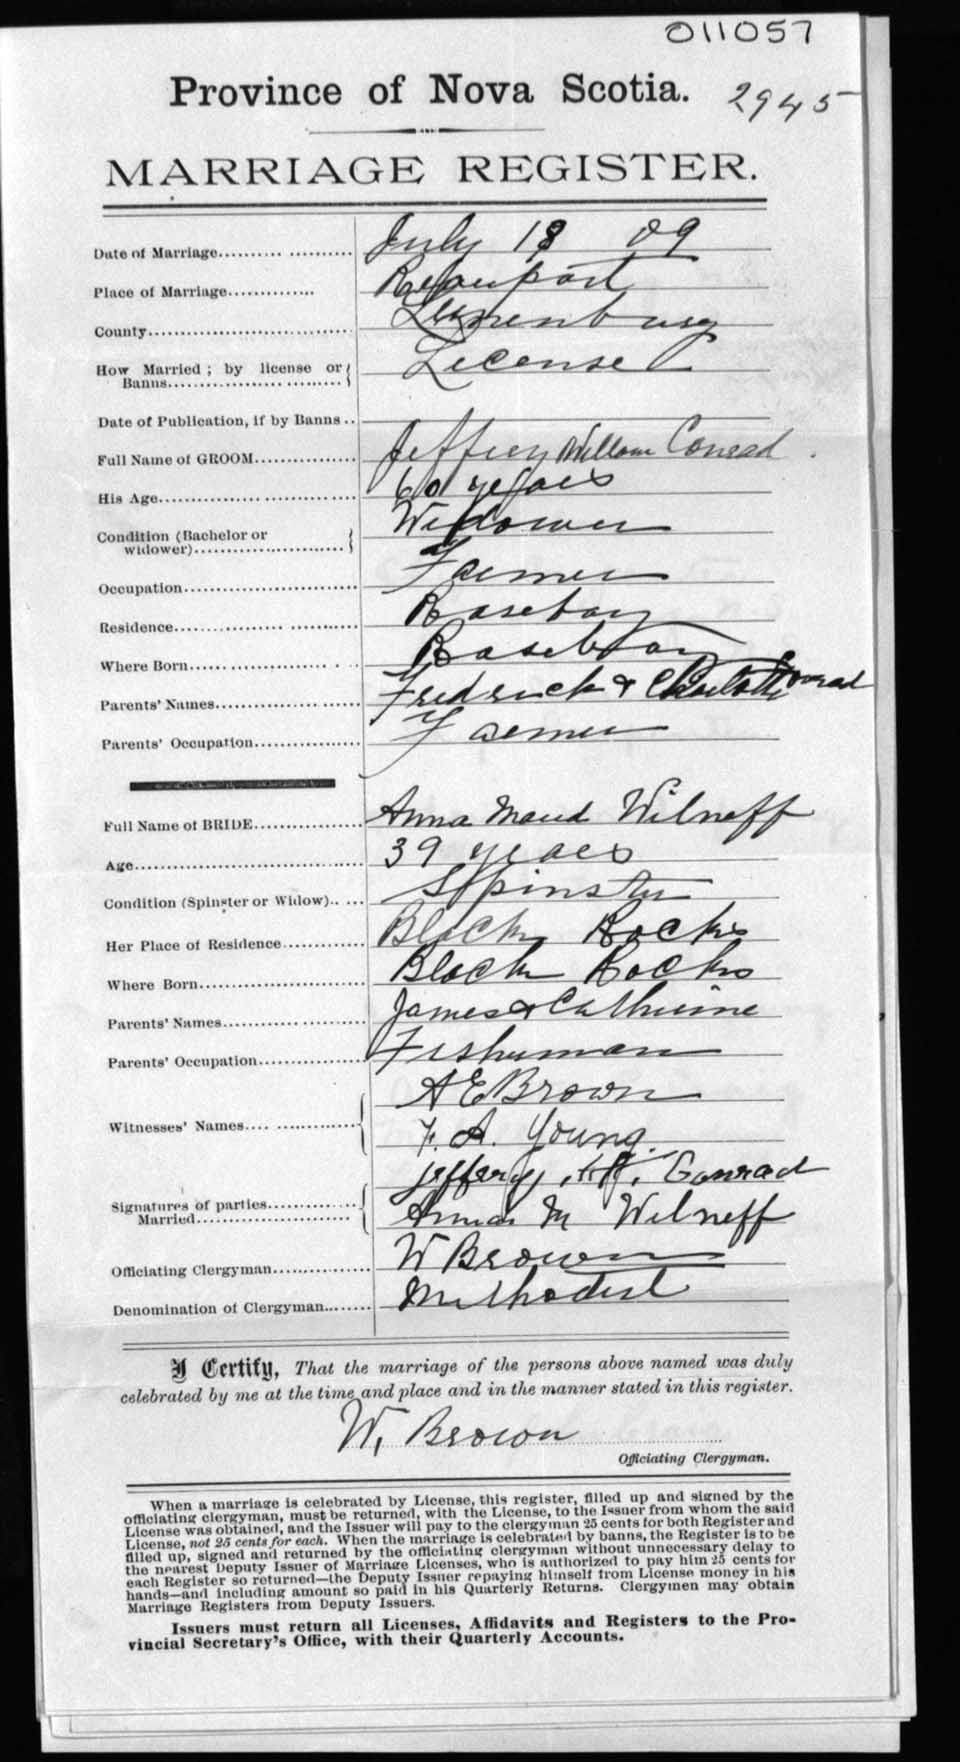 011057
Province of Nova Scotia. 2945
MARRIAGE REGISTER.
Date of Marriage July 18 09
Place of Marriage
County Lunenburg
How Married; by license or Banns License
Date of Publication, if by Banns
Full Name of GROOM Jeffrey William Conrad
His Age 60 years
Condition (Bachelor or widower) Widower
Occupation Farmer
Residence Rosebay
Where Born Rosebay
Parents' Names Fredrick & Charlotte Conrad
Parents' Occupation Farmer
Full Name of BRIDE Anna Maud Wilneff
Age 39 years
Condition (Spinster or Widow) Spinster
Her Place of Residence Black Rocks
Where Born Black Rocks
Parents' Names James & Catherine
Parents' Occupation Fisherman
Witnesses' Names A E Brown
F. A. Young.
Signatures of parties Married Jeffery Conrad
Anna M Wilneff
Officiating Clergyman W Brown
Denomination of Clergyman Methodist
I Certify, That the marriage of the persons above named was duly
celebrated by me at the time and place and in the manner stated in this register.
W. Brown
Officiating Clergyman.
When a marriage is celebrated by License, this register, filled up and signed by the
officiating clergyman, must be returned, with the License, to the Issuer from whom the said
License was obtained, and the Issuer will pay to the clergyman 25 cents for both Register and
License, not 25 cents for each. When the marriage is celebrated by banns, the Register is to be
filled up, signed and returned by the officiating clergyman without unnecessary delay to
the nearest Deputy Issuer of Marriage Licenses, who is authorized to pay him 25 cents for
each Register so returned—the Deputy Issuer repaying himself from License money in his
hands—and including amount so paid in his Quarterly Returns. Clergymen may obtain
Marriage Registers from Deputy Issuers.
Issuers must return all Licenses, Affidavits and Registers to the Pro-
vincial Secretary's Office, with their Quarterly Accounts.